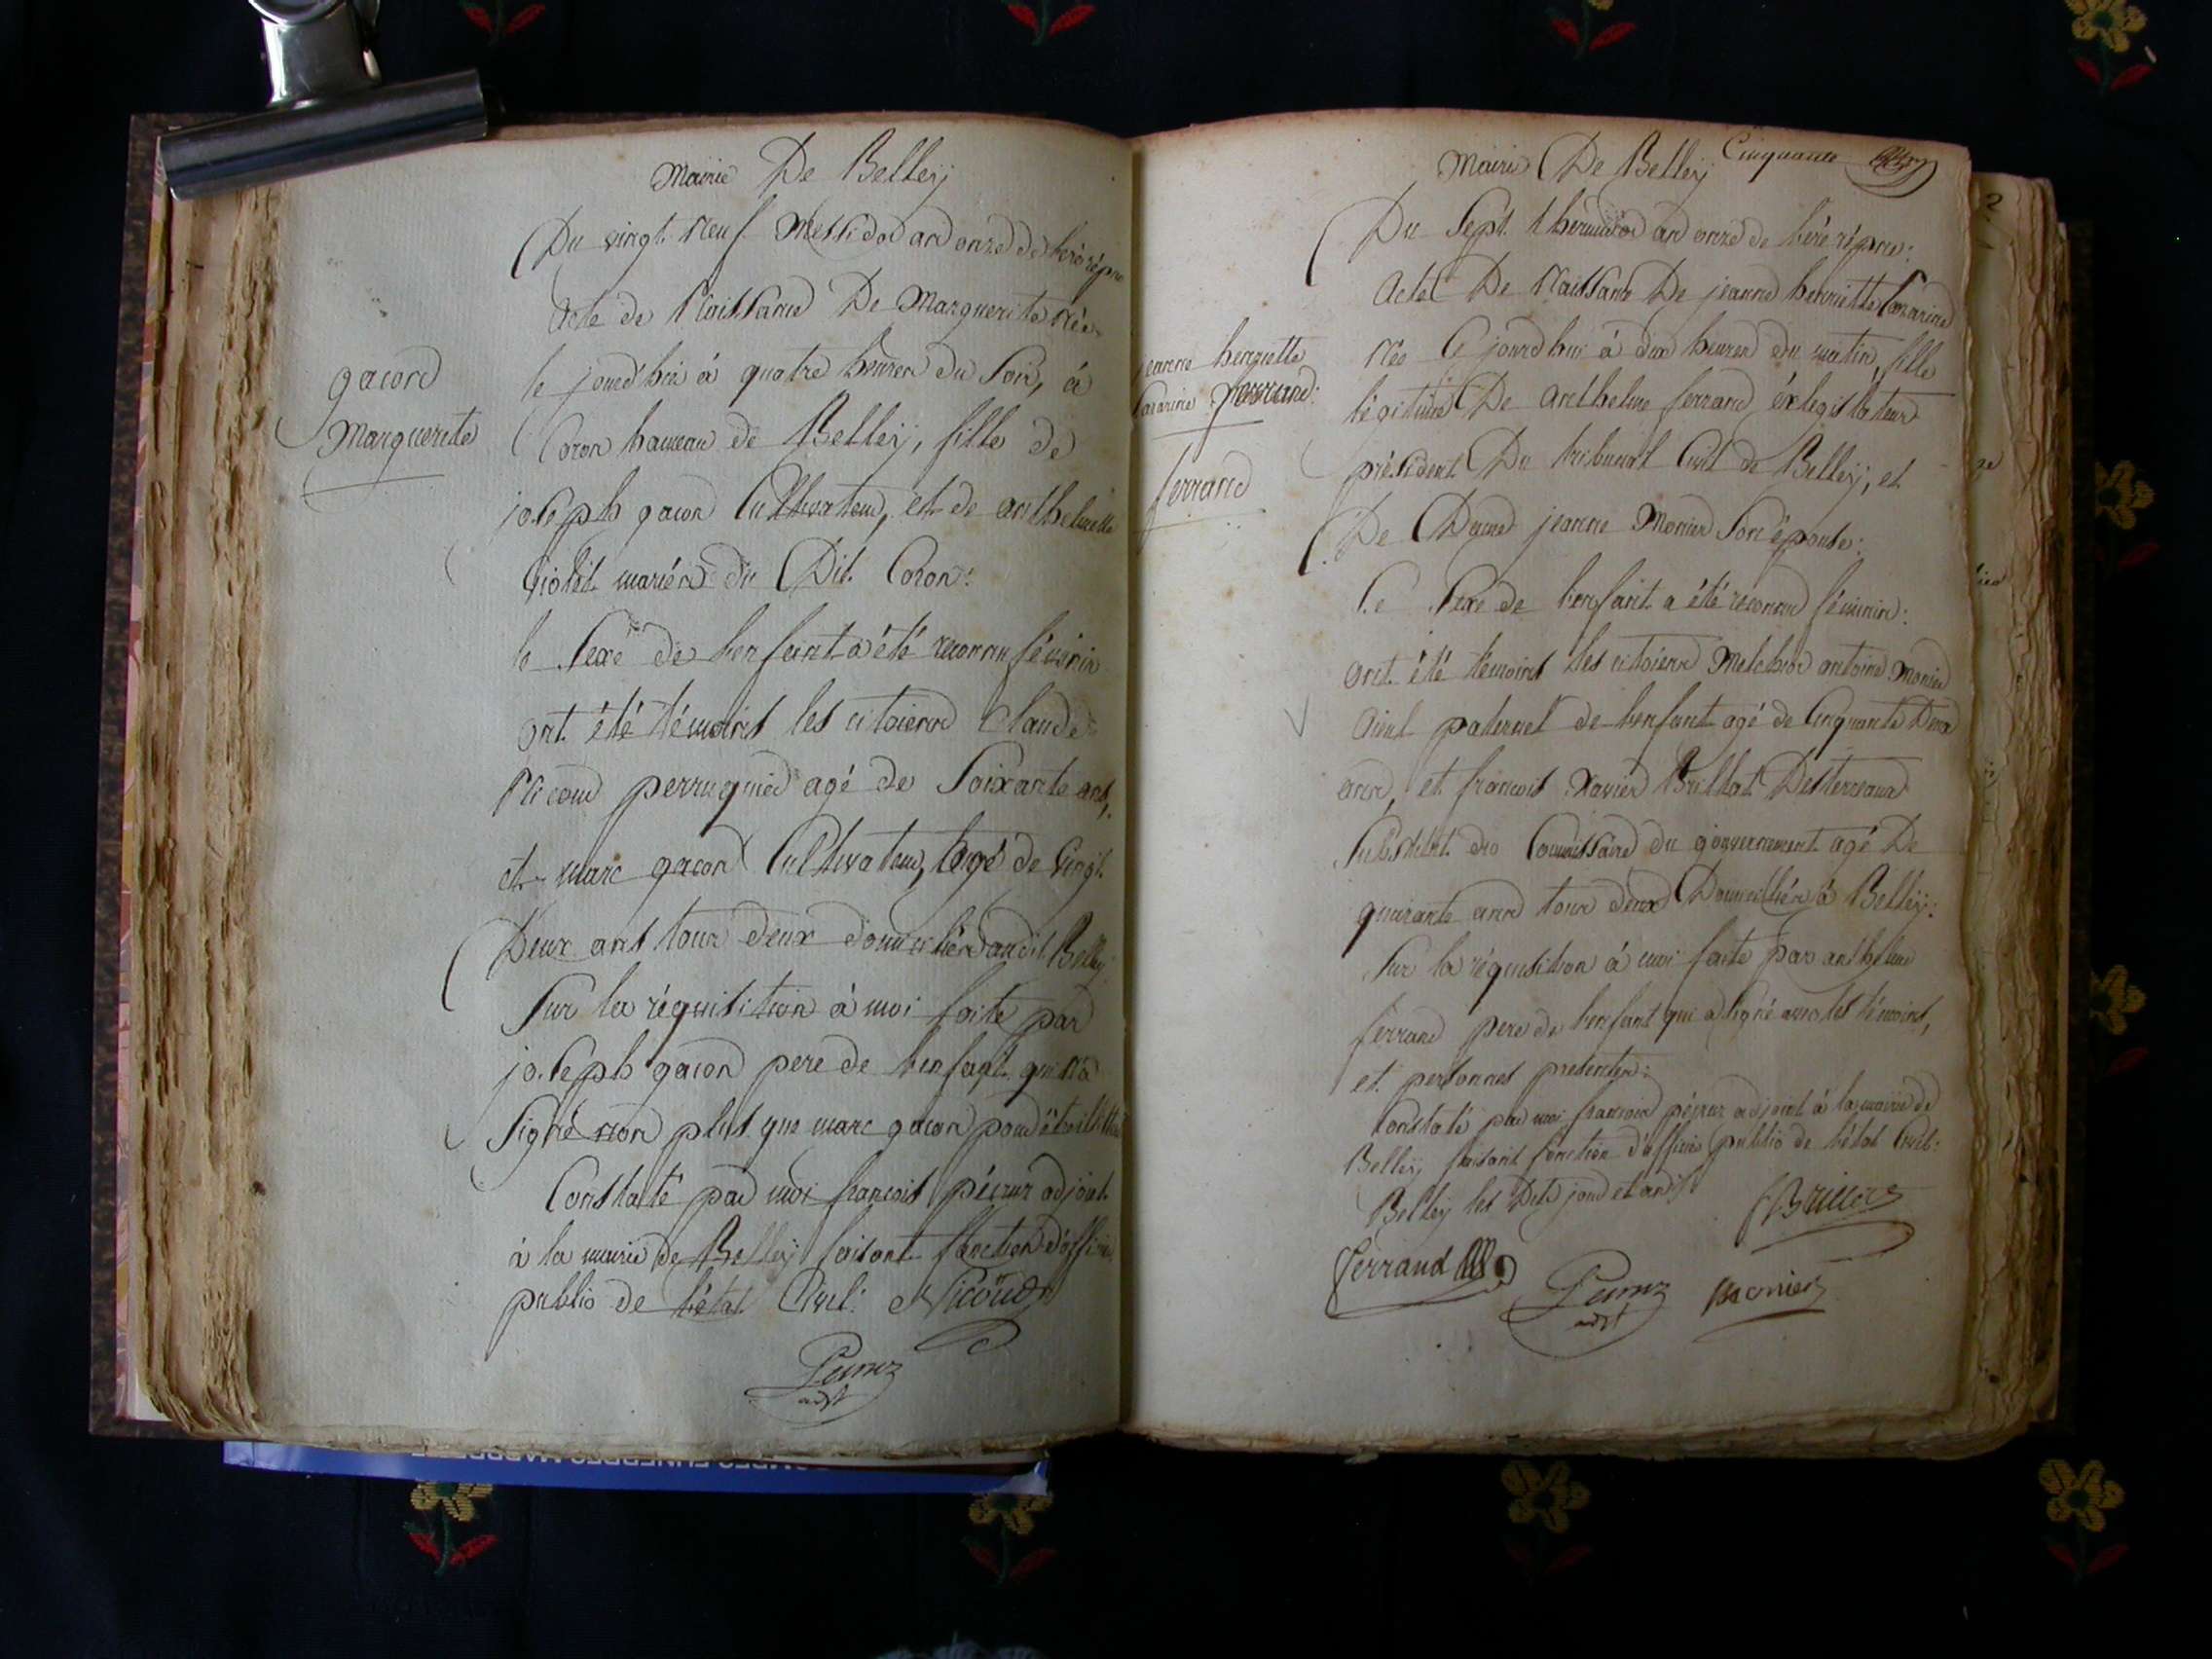 Mairie De Belleÿ
Du vingt neuf Messidor an onze de l'ère répne
Acte de Naissance De Marguerite née
le jourd'hui à quatre heures du soir, à
gacon
Marguerite
Coron hameau de Belleÿ, fille de
joseph gacon Cultivateur, et de anthelmette
violet mariés du Dit Coron:
le sexe de l'enfant a été reconnu féminin
ont été témoins les citoiens Claude
Nicoud perruquier agé de Soixante ans,
et marc gacon Cultivateur, agé de vingt
Deux ans tous deux domiciliés audit Belleÿ
Sur la réquisition à moi faite par
joseph gacon pere de l'enfant qui n'a
signé non plus que marc gacon pour être illittéré
Constaté par moi françois adjoint
à la mairie de Belleÿ faisant fonction d'officier
public de l'état Civil: Nicoud
adjt
Mairie De Belleÿ Cinquante
Du Sept thermidor an onze de l'ère répne:
Acte De Naissance De jeanne henriette Lazarine
née Ce jourd'hui à dix heures du matin, fille
jeanne henriette
Lazarine ferrand:
ferrand
légitime De anthelme ferrand éxlegislateur
président Du tribunal Civil de Belleÿ, et
De Dame jeanne Monier son épouse:
Le Sexe de l'enfant a été reconnu féminin:
ont été témoins les citoiens Melchior antoine Monier
aieul paternel de l'enfant agé de Cinquante Deux
ans, et françois Xavier Brillat Desterreaux
Substitut du Commissaire du gouvernement agé De
quarante ans tous deux Domiciliés à Belleÿ:
Sur la réquisition à moi faite par anthelme
ferrand pere de l'enfant qui a signé avec les témoins,
et personnes presentes:
Constaté par moi françois adjoint à la mairie de
Belleÿ faisant fonction d'officier public de l'état Civil:
Belleÿ les Dits jour et an
ferrand
adjt
monier